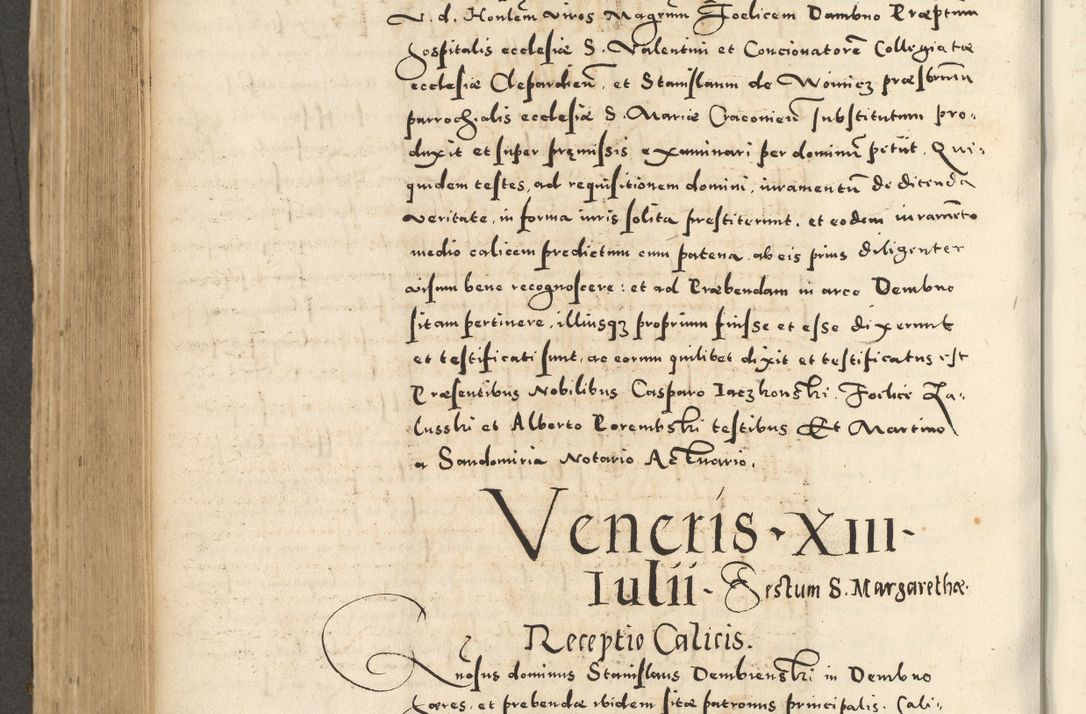 V. d. Honlem viros Magrum Foelicem Dambno Præptum
hospitalis ecclesiæ S. Valentini et Concionatorē Collegiatæ
ecclesiæ Clepardień, et Stanislaum de Woinicz præsbrum
parrochialis ecclesiæ S. Mariæ Cracouień substitutum pro-
duxit et super pręmissis examinari per dominū petiit. Qui-
quidem testes, ad requisitionem domini, iuramentū de dicenda
veritate, in forma iuris solita prestiterunt. et eodem iuramēto
medio calicem predictum cum patena ab eis prius diligenter
visum bene recognoscere: et ad Præbendam in arce Dembno
sitam pertinere, illiusqz proprium fuisse et esse dixerunt
et testificati sunt, ac eorum quilibet dixit et testificatus est
Præsentibus Nobilibus Casparo Iaczkonski. Foelice Za-
lusski et Alberto Porembski testibus Et Martino
a Sandomiria Notario Actuario.
Veneris · XIII ·
Iulii · Festum S. Margarethæ.
Receptio Calicis.
Gnosus dominus Stanislaus Dembienski in Dembno
hæres, et prebendæ ibidem sitæ patronus principalis. Cali-